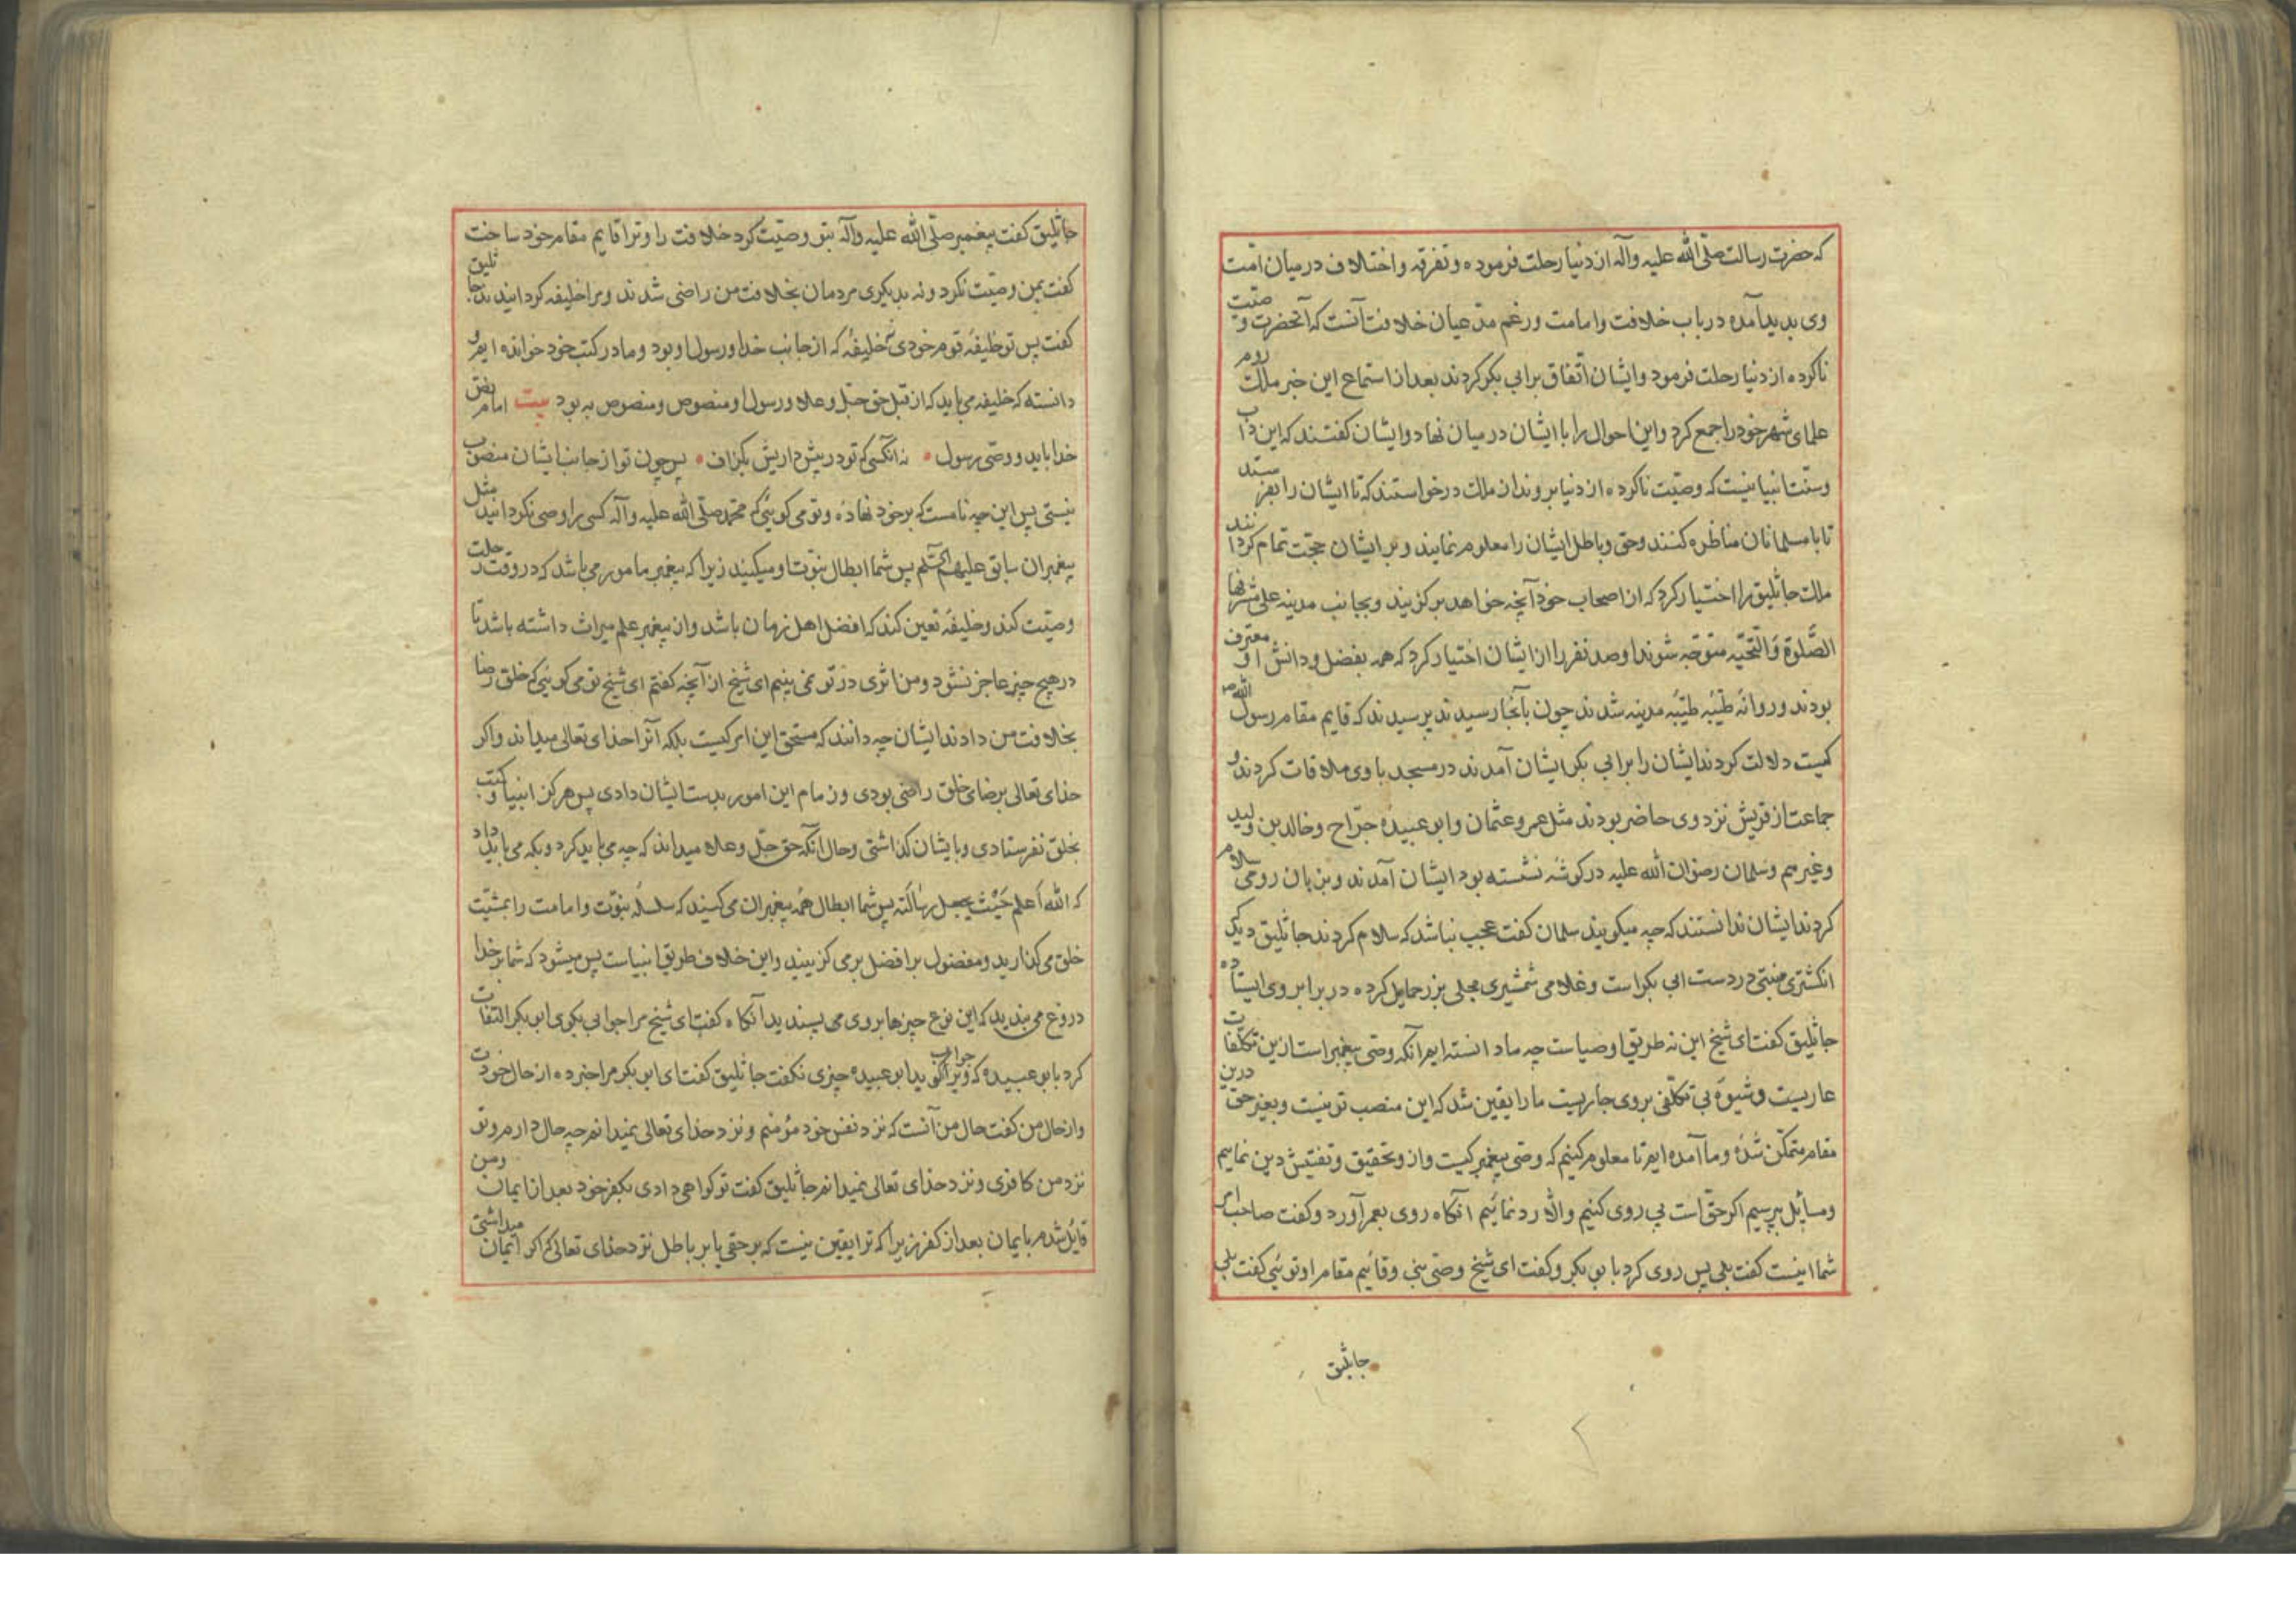 که حضرت رسالت صلّی الله علیه وآله از دنیا رحلت فرموده و تفرقه و اختلاف در میان امّت
وی بدید آمده در باب خلافت و امامت و رغم مدّعیان خلافت آنست که آنحضرت وصّیت
ناکرده از دنیا رحلت فرمود و ایشان اتّفاق برابی بکر کردند بعد از استماع این خبر ملک روم
علمای شهر خود را جمع کرد و این احوال را با ایشان در میان نهاد و ایشان گفتند که این داب
و سنّت انبیا نیست که وصیّت ناکرده از دنیا بروند از ملک درخواستند که تا ایشان را بفرستد
تا با مسلمانان مناظره کنند و حق و باطل ایشان را معلوم نمایند و بر ایشان حجّت تمام کردانند
ملک جاثلیق را اختیار کرد که از اصحاب خود آنچه خواهد برکزیند و بجانب مدینه علی مشرفها
الصَّلوة وَالتّحیّه متوجّه شوند او صد نفر را از ایشان اختیار کرد که همه بفضل و دانش او معترف
بودند و روانهٔ طیّبهٔ مدینه شدند چون بآنجا رسیدند پرسیدند که قایم مقام رسول الله ص
کیست دلالت کردند ایشان را برابی بکر ایشان آمدند در مسجد با وی ملاقات کردند و
جماعت از قریش نزد وی حاضر بودند مثل عمر و عثمان و ابو عبیدهٔ جرّاح و خالد بن ولید
و غیرهم و سلمان رضوان الله علیه در کوشهٔ نشسته بود ایشان آمدند و بزبان رومی سلام
کردند ایشان ندانستند که چه میکویند سلمان کفت عجب نباشد که سلام کردند جاثلیق دید که
انکشتری در دست ابی بکر است و غلامی شمشیری محلی بزر حمایل کرده در برابر وی ایستاده
جاثلیق کفت ای شیخ این نه طریق اوصیاست چه ما دانسته ایم آنکه وصّی پیغمبر است ازین تکلّفات
عاریست و شیوهٔ بی تکلّفی بروی جاریست ما را یقین شد که این منصب تو نیست و بغیر حق درین
مقام متمکّن شدهٔ و ما آمده ایم تا معلوم کنیم که وصّی پیغمبر کیست و از و تحقیق و تفتیش دین نماییم
و مسایل بپرسیم اکر حقّ است پی روی کنیم والّا رد نمائیم آنکاه روی بعمر آورد و کفت صاحب امر
شما اینست کفت بلی پس روی کرد بابو بکر و کفت ای شیخ وصّی نبی و قائیم مقام او توئی کفت بلی
جاثلیق
جاثلیق کفت پیغمبر صلّی الله علیه وآله بتو وصیّت کرد خلافت را و ترا قایم مقام خود ساخت
کفت بمن وصیّت نکرد و نه بدیکری مردمان بخلافت من راضی شدند و مرا خلیفه کردانیدند جاثلیق
کفت پس تو خلیفهٔ قوم خودی نه خلیفهٔ که از جانب خدا و رسول او بود و ما در کتب خود خوانده ایم و
دانسته که خلیفه می باید که از قبل حق جلّ و علا و رسول او منصوص و منصوص به بود بیت امام بنصّ
خدا باید و وصّی رسول • نه آنکسی که تو در پیش داریش بکزاف • پس چون تو از جانب ایشان منصوب
نیستی پس این چه نامست که بر خود نهادهٔ و تو می کوئی که محمد صلّی الله علیه وآله کسی را وصی نکردانید مثل
پیغمبران سابق علیهم السّلم پس شما ابطال نبوّت او میکنید زیرا که پیغمبر مامور می باشد که در وقت رحلت
وصیّت کند و خلیفهٔ تعین کند که افضل اهل زمان باشد و از پیغمبر علم میراث داشته باشد تا
در هیچ چیز عاجز نشود و من اثری در تو نمی بینم ای شیخ از آنچه کفتم ای شیخ تو می کوئی که خلق رضا
بخلافت من دادند ایشان چه دانند که مستحق این امر کیست بلکه آنرا خدای تعالی میداند و اکر
خدای تعالی برضای خلق راضی بودی و زمام این امور بدست ایشان دادی پس هرکز انبیا و کتب
بخلق نفرستادی و بایشان کذاشتی و حال آنکه حق جلّ و علا میداند که چه می باید کرد و بکه می باید داد
که الله اَعلم حَیْث یجعل رسالَته پس شما ابطال همهٔ پیغمبران می کنید که سلسلهٔ نبوّت و امامت را بمشیّت
خلق می کذارید و مفضول بر افضل بر می کزینید و این خلاف طریق انبیاست پس میشود که شما بر خدا
دروغ می بندید که این نوع چیزها بروی می پسندید آنکاه کفت ای شیخ مرا جوابی بکوی ابو بکر التفات
کرد بابو عبیده که ویرا جواب کوید ابو عبیده چیزی نکفت جاثلیق کفت ای ابو بکر مرا خبر ده از حال خودت
و از حال من کفت حال من آنست که نزد نفس خود مؤمنم و نزد خدای تعالی نمیدانم چه حال دارم و تو
نزد من کافری و نزد خدای تعالی نمیدانم جاثلیق کفت تو کواهی دادی بکفر خود بعد از ایمان و من
قایل شدم بایمان بعد از کفر زیرا که ترا یقین نیست که بر حقی یا بر باطل نزد خدای تعالی که اکر ایمان میداشتی